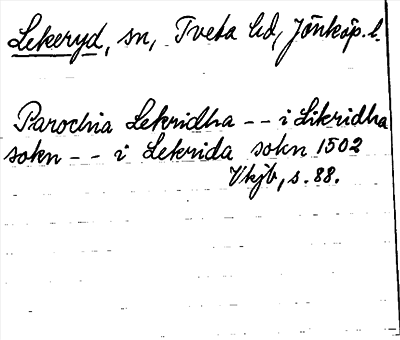 Lekeryd, sn, Tveta hd, Jönköp. l.
Parochia Lekridha -- i Likridha
sokn -- i Lekrida sokn 1502
Vkjb, s. 88.